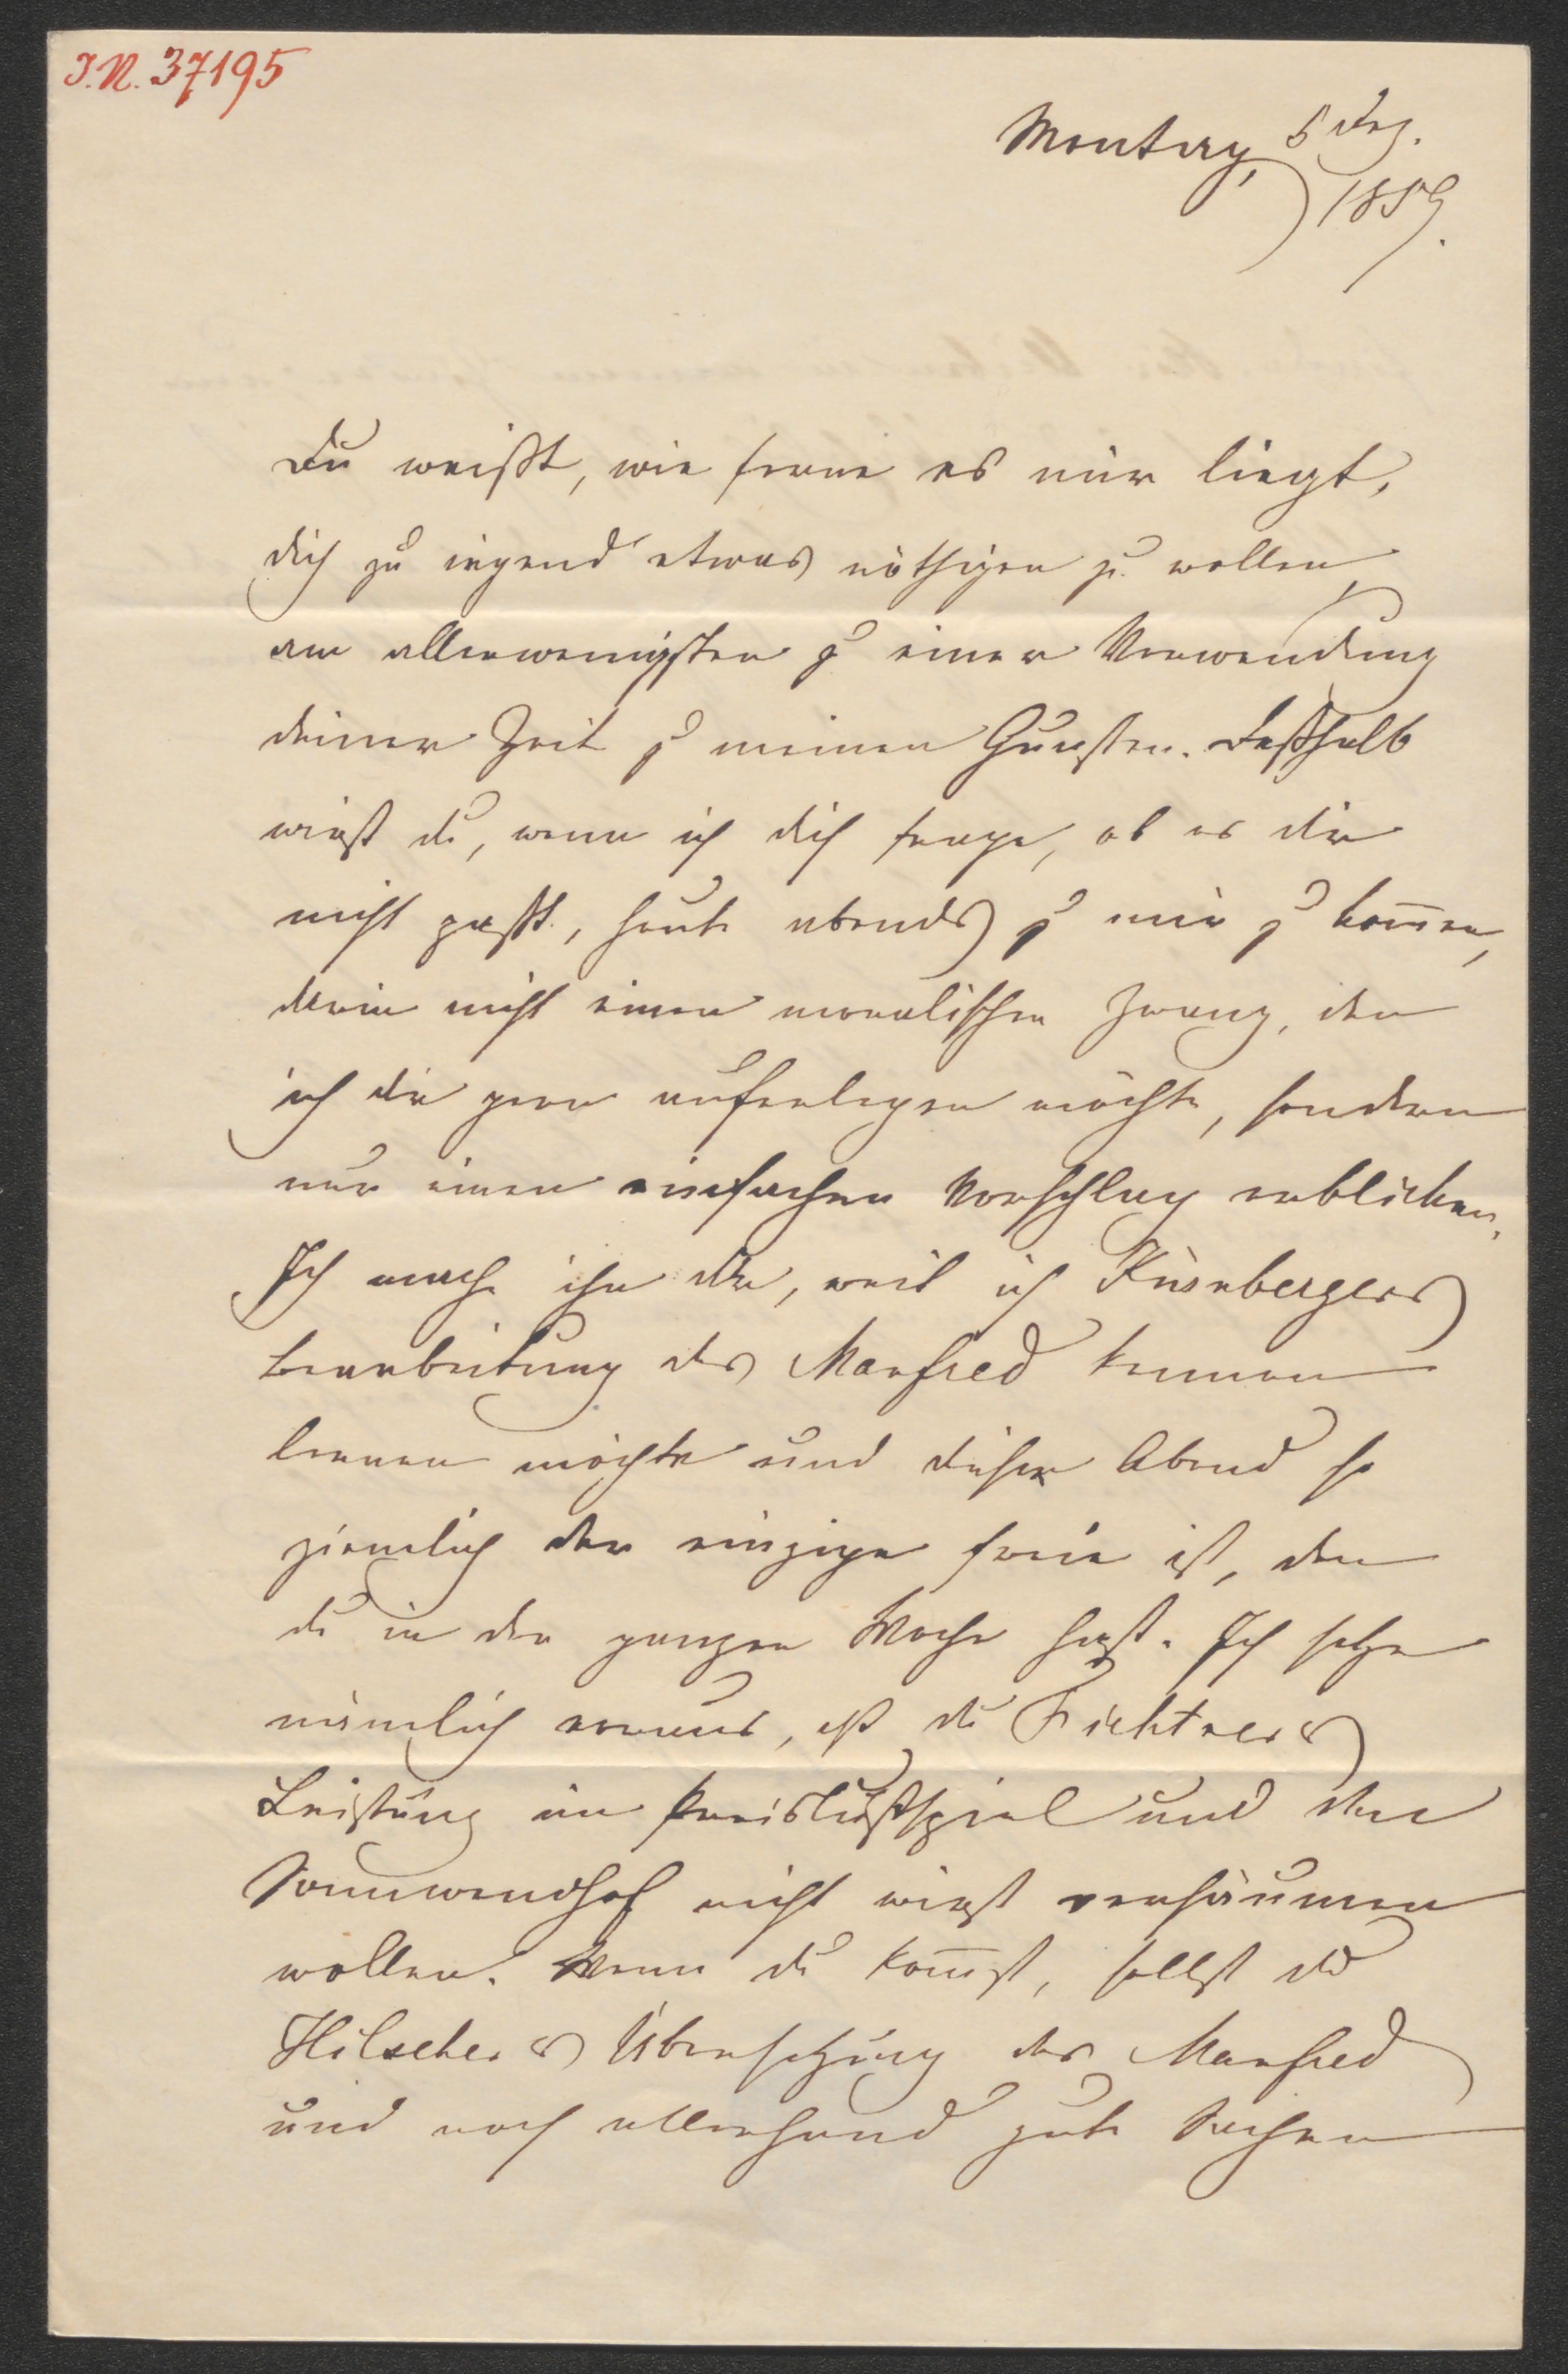 I.N. 37195
Montag, 5 Dez.
1859.
Du weißt, wie ferne es mir liegt,
dich zu irgend etwas nöthigen zu wollen,
am allerwenigsten zu einer Verwendung
deiner Zeit zu meinen Gunsten. Deßhalb
wirst du, wenn ich dich frage, ob es dir
nicht paßt, heute abends zu mir zu kom̅en,
darin nicht einen moralischen Zwang, den
ich dir gern auferlegen möchte, sondern
nur einen einfachen Vorschlag erblicken.
Ich mache ihn dir, weil ich Kürnbergers
Bearbeitung des Manfred kennen
lernen möchte und dieser Abend so
ziemlich der einzige freie ist, den
du in der ganzen Woche hast. Ich setze
nämlich voraus, daß du Fichtners
Leistung im Preislustspiel und den
Sonnwendhof nicht wirst versäumen
wollen. Wenn du kom̅st, sollst du
Hilschers Übersetzung des Manfred
und noch allerhand gute Sachen